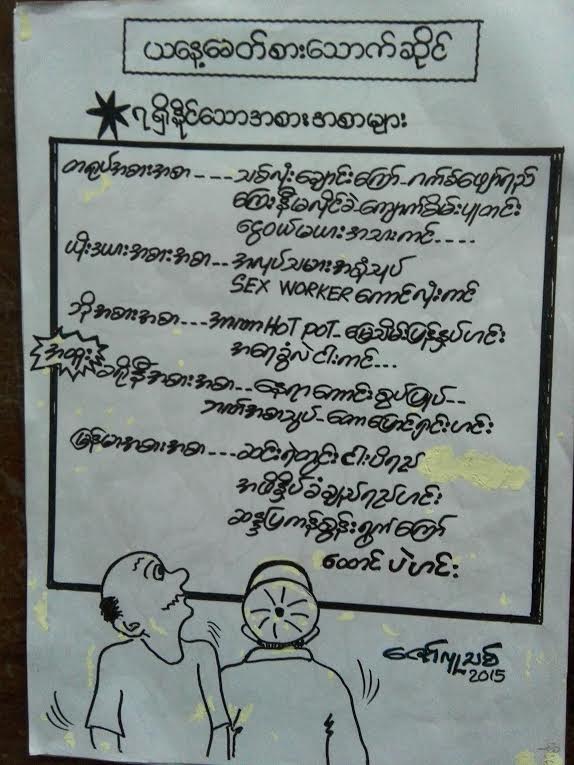 ယနေ့ခေတ်စားသောက်ဆိုင်
ရရှိနိုင်သောအစားအစာများ
တရုပ်အစားအစာ ---- သစ်လုံးချောင်းကြော်-ဂက်စ်ဖျော်ရည်
ကြေးနီမလိုင်ခဲ-ကျောက်စိမ်းပူတင်း
ငွေဝယ်မယားအသားကင်....
ယိုးဒယားအစားအစာ -- အလုပ်သမားအစုံသုပ်
SEX WORKER ကောင်လုံးကင်
ဘိုအစားအစာ --- အာဏာ HOT POT - မြေသိမ်းပြန်နှပ်ဟင်း
အရေခွံလဲငါးကင်...
အထူး
ခရိုနီအစားအစာ -- နေရာကောင်းစွပ်ပြုပ် --
ဘဏ်အစာသွပ်-တောပြောင်ရှင်းဟင်း
မြန်မာအစားအစာ --- ဆင်းရဲတွင်းငါးပိရည်
အဖိနှိပ်ခံချဉ်ရည်ဟင်း
ဆန္ဒပြကန်စွန်းရွက်ကြော်
ထောင် ပဲဟင်း
2015